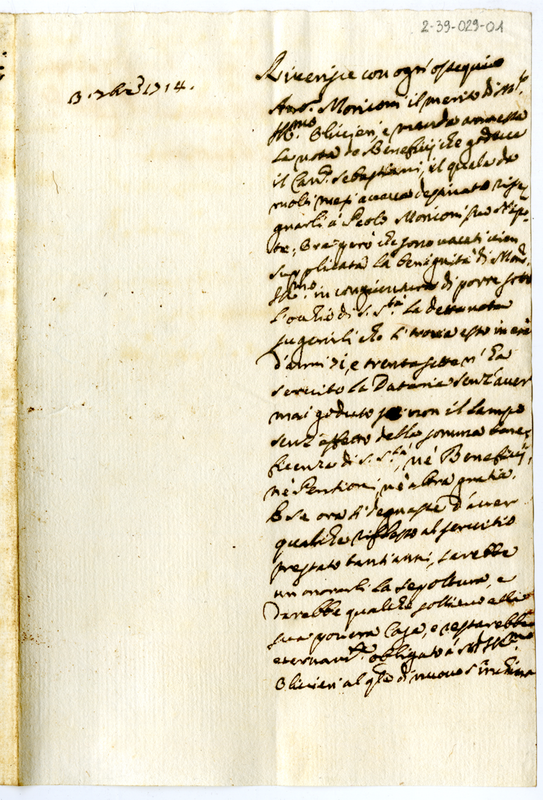 2-39-029-01
3. 9bre 1714.
Riverisce con ogni ossequio
Ant.o Moriconi il merito di M.r
Ill.mo Olivieri, e manda annessa
la nota de Beneficij che godeva
il Can.co Sebastiani, il quale da
molti mesi aveva destinato rasse
gnarli à Paolo Moriconi suo Nipo
te, Ora però che sono vacati vien
supplicata la benignità di Mons.
Ill.mo in congiuntura di porre sotto
l'occhio di S. S.tà la detta nota
sugerirli che si trova esso in età
d'anni 71, e trentasette n'hà
servito la Dataria senz'aver
mai goduto se non il tempo
senz'effetto della somma bene
ficenza di S. S.tà, nè Beneficij,
nè Pensioni, nè altra gratia.
E se ora si degnasse d'aver
qualche riflesso al servitio
prestato tanti anni, sarebbe
un onorarli la sepoltura, e
darebbe qualche sollievo alla
sua povera Casa, e restarebbe
eternam.te obligato à M. Ill.mo
Olivieri al q.le di nuovo s'inchina